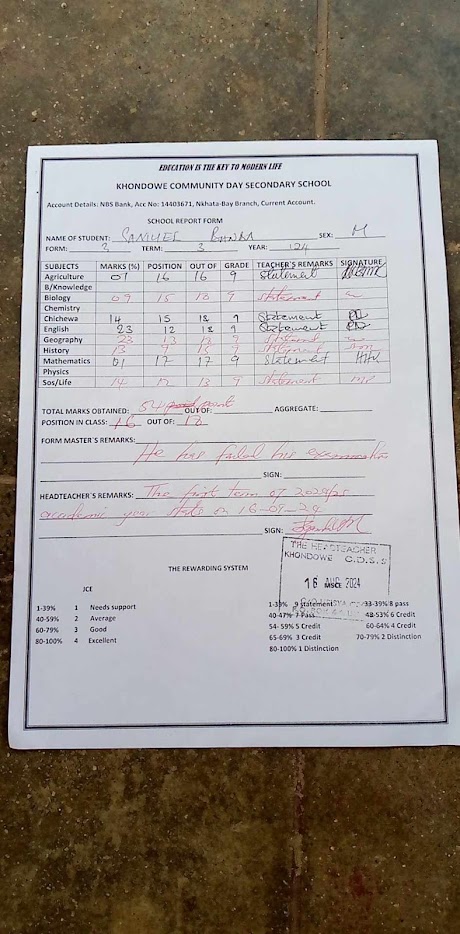 EDUCATION IS THE KEY TO MODERN LIFE
KHONDOWE COMMUNITY DAY SECONDARY SCHOOL
Account Details: NBS Bank, Acc No: 14403671, Nkhata-Bay Branch, Current Account.
SCHOOL REPORT FORM
NAME OF STUDENT: SAMUEL BANDA SEX: M
FORM: 3 TERM: 3 YEAR: 124
SUBJECTS MARKS (%) POSITION OUT OF GRADE TEACHER'S REMARKS SIGNATURE
Agriculture 07 16 16 9 Statement
B/Knowledge
Biology 09 15 18 9 statement
Chemistry
Chichewa 14 15 18 9 Statement
English 23 12 18 9 Statement
Geography 23 13 18 9 Statement
History 13 9 15 9 Statement
Mathematics 01 17 17 9 Statement
Physics
Sos/Life 14 12 13 9 Statement
TOTAL MARKS OBTAINED: 54 point OUT OF: AGGREGATE:
POSITION IN CLASS: 16 OUT OF: 18
FORM MASTER'S REMARKS:
He has failed his examination
SIGN:
HEADTEACHER'S REMARKS: The first term of 2024/25
academic year starts on 16-09-24
SIGN:
THE HEADTEACHER
KHONDOWE C.D.S.S
16 AUG 2024
THE REWARDING SYSTEM
JCE MSCE
1-39% 1 Needs support 1-39% 9 statement 33-39% 8 pass
40-59% 2 Average 40-47% 7 Pass 48-53% 6 Credit
60-79% 3 Good 54- 59% 5 Credit 60-64% 4 Credit
80-100% 4 Excellent 65-69% 3 Credit 70-79% 2 Distinction
80-100% 1 Distinction